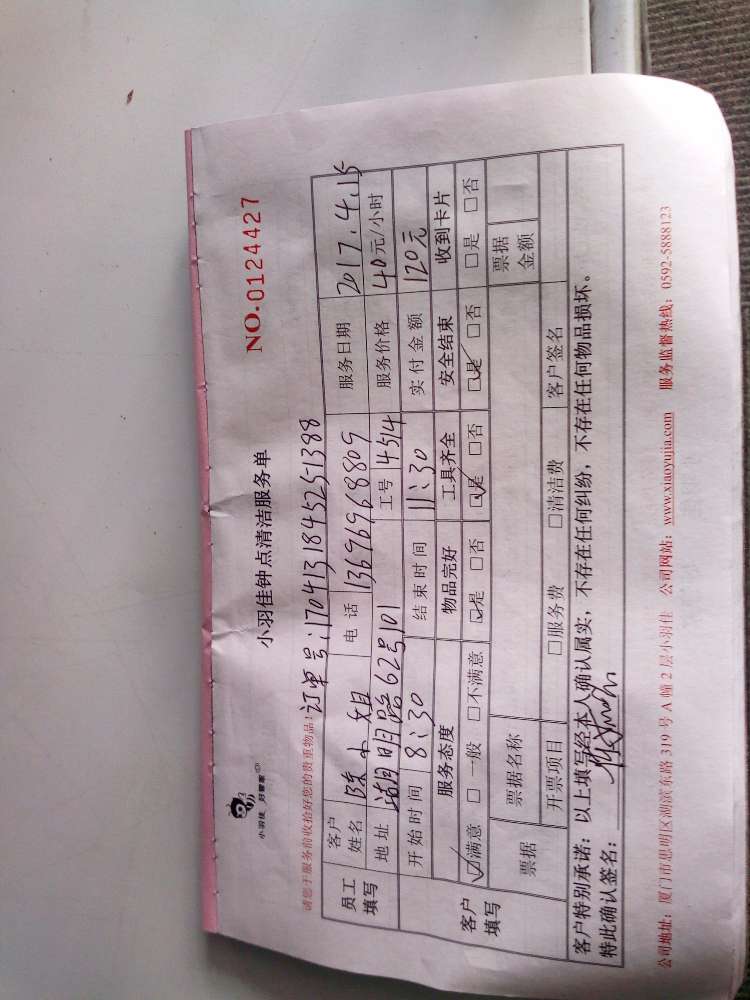 小羽佳 好管家
小羽佳钟点清洁服务单
NO.0124427
请您于服务前收拾好您的贵重物品!
订单号:170413184525-1388
员工填写
客户姓名 陈小姐 电话 13696968809 服务日期 2017.4.15
地址 湖明路62号101 工号 4514 服务价格 40元/小时
开始时间 8:30 结束时间 11:30 实付金额 120元
客户填写
服务态度 物品完好 工具齐全 安全结束 收到卡片
☑满意 □一般 □不满意 ☑是 □否 ☑是 □否 ☑是 □否 □是 □否
票据 票据名称 票据金额
开票项目 □服务费 □清洁费 客户签名
客户特别承诺:以上填写经本人确认属实,不存在任何纠纷,不存在任何物品损坏。
特此确认签名:
公司地址:厦门市思明区湖滨东路 319 号 A 幢 2 层小羽佳 公司网站:www.xiaoyujia.com 服务监督热线:0592-5888123